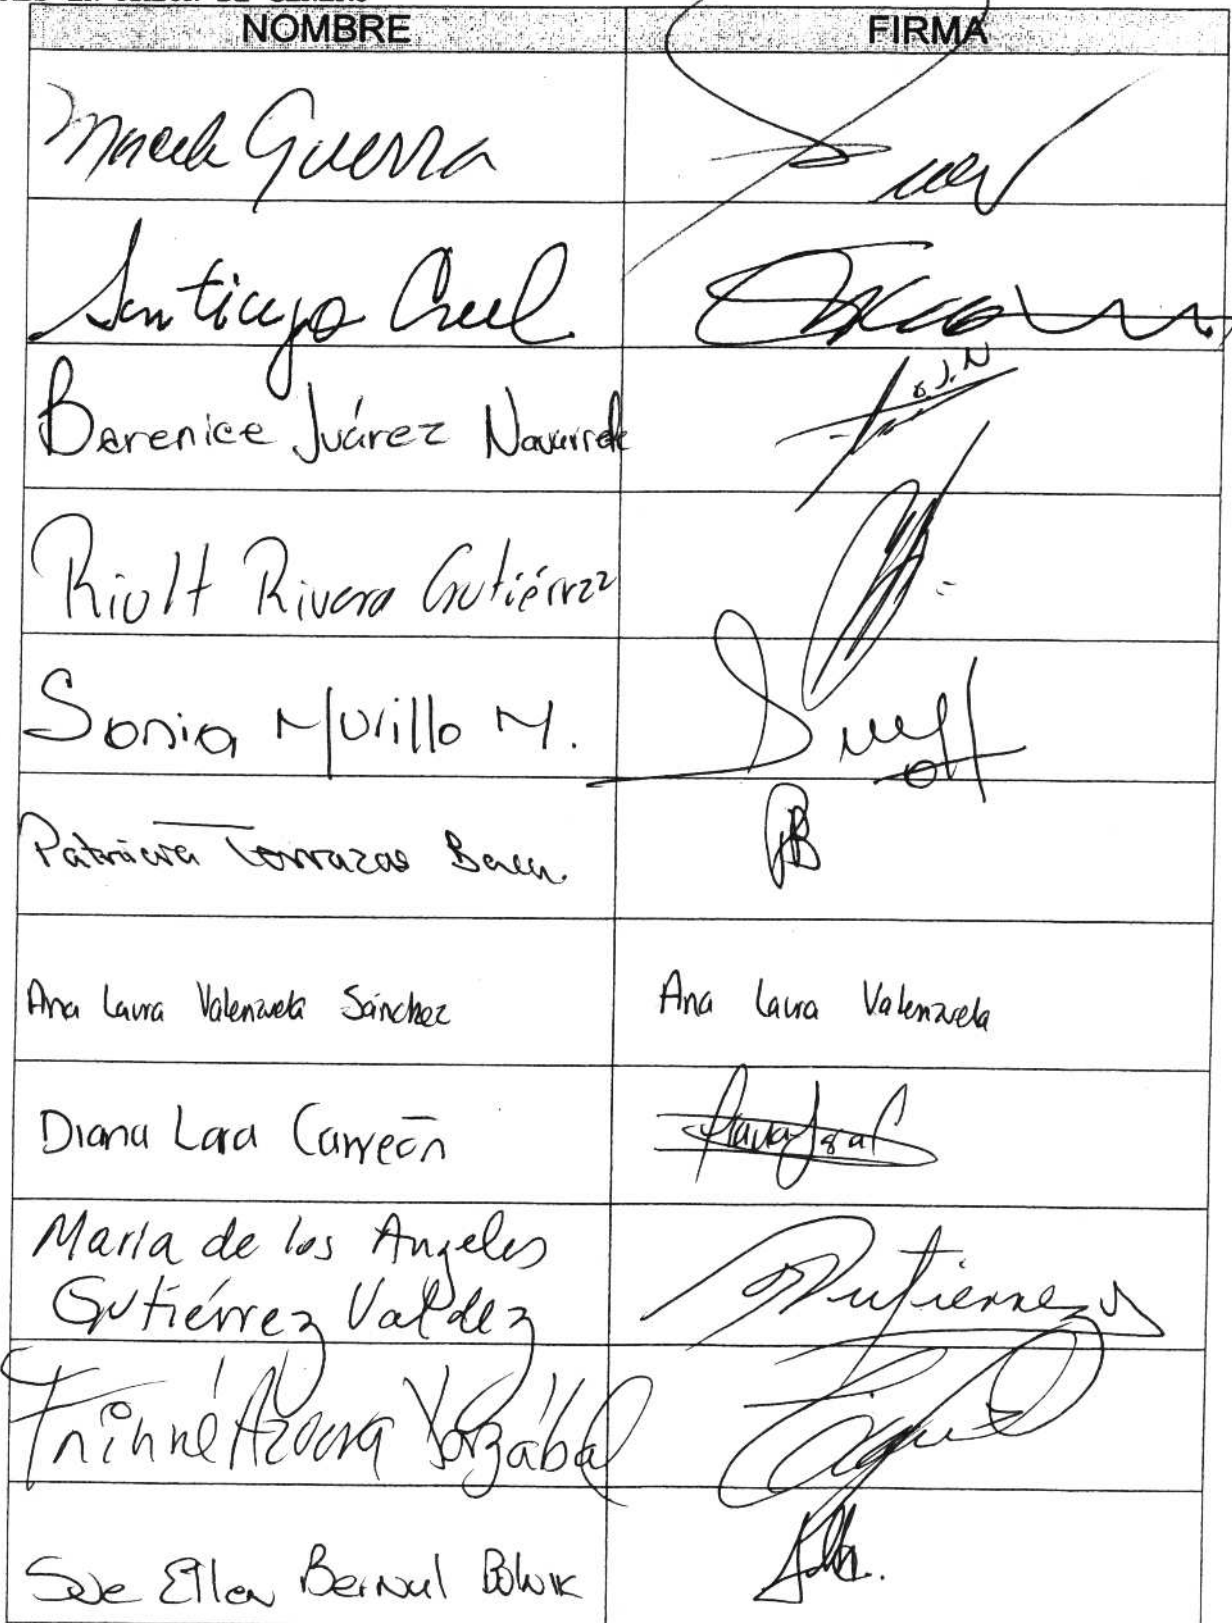 NOMBRE FIRMA
Guerra
Santiago Creel
Berenice Juárez Navarrete B.J.N
Riult Rivera Gutiérrez
Sonia Murillo M.
Patricia Terrazas Baca. PB
Ana Laura Valenzuela Sánchez Ana Laura Valenzuela
Diana Lara Carreón
María de los Angeles
Gutiérrez Valdez Gutiérrez
Frinné Azuara Yarzábal
Sue Ellen Bernal Bolnik